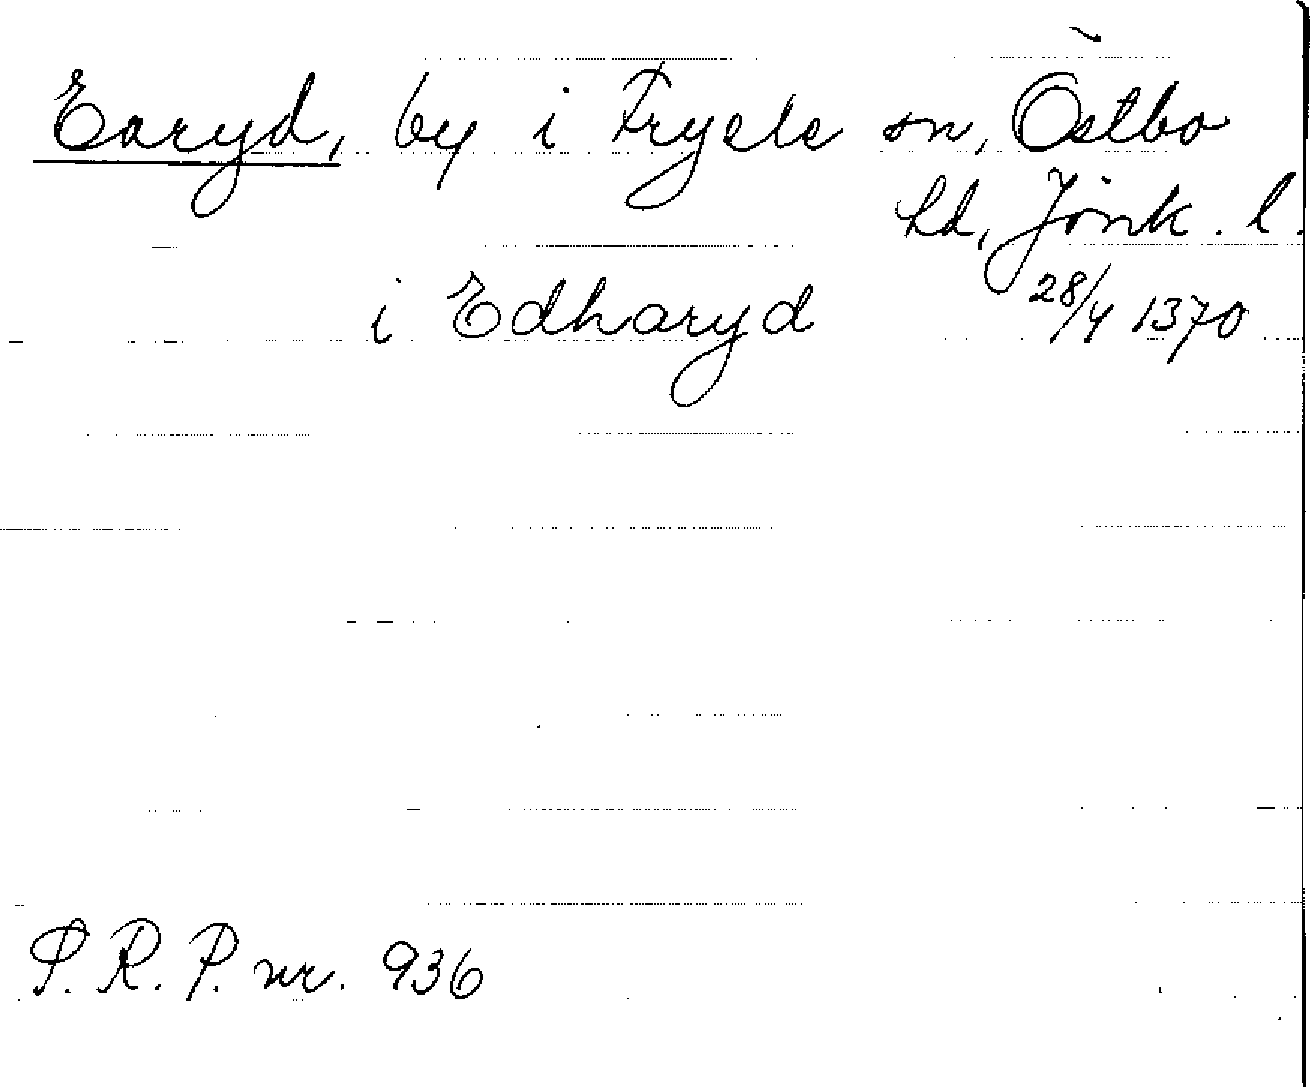 Earyd, by i Fryele sn, Östbo
hd, Jönk. l.
i Edharyd 28/4 1370
S. R. P. nr. 936